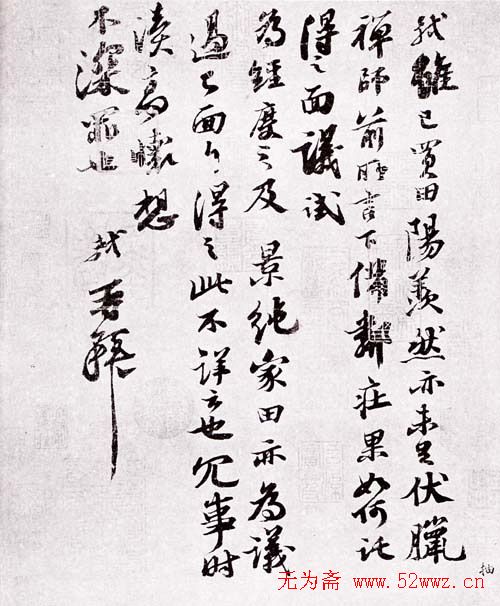 軾雖已買田陽羨然亦未足伏臘
禪師前所言下備鄰莊果如何託
得之面議試
為經度之及景純家田亦為議
過已面白得之此不詳云也冗事時
瀆高懷想
不深罪也
軾再拜
无为斋 www.52wwz.cn